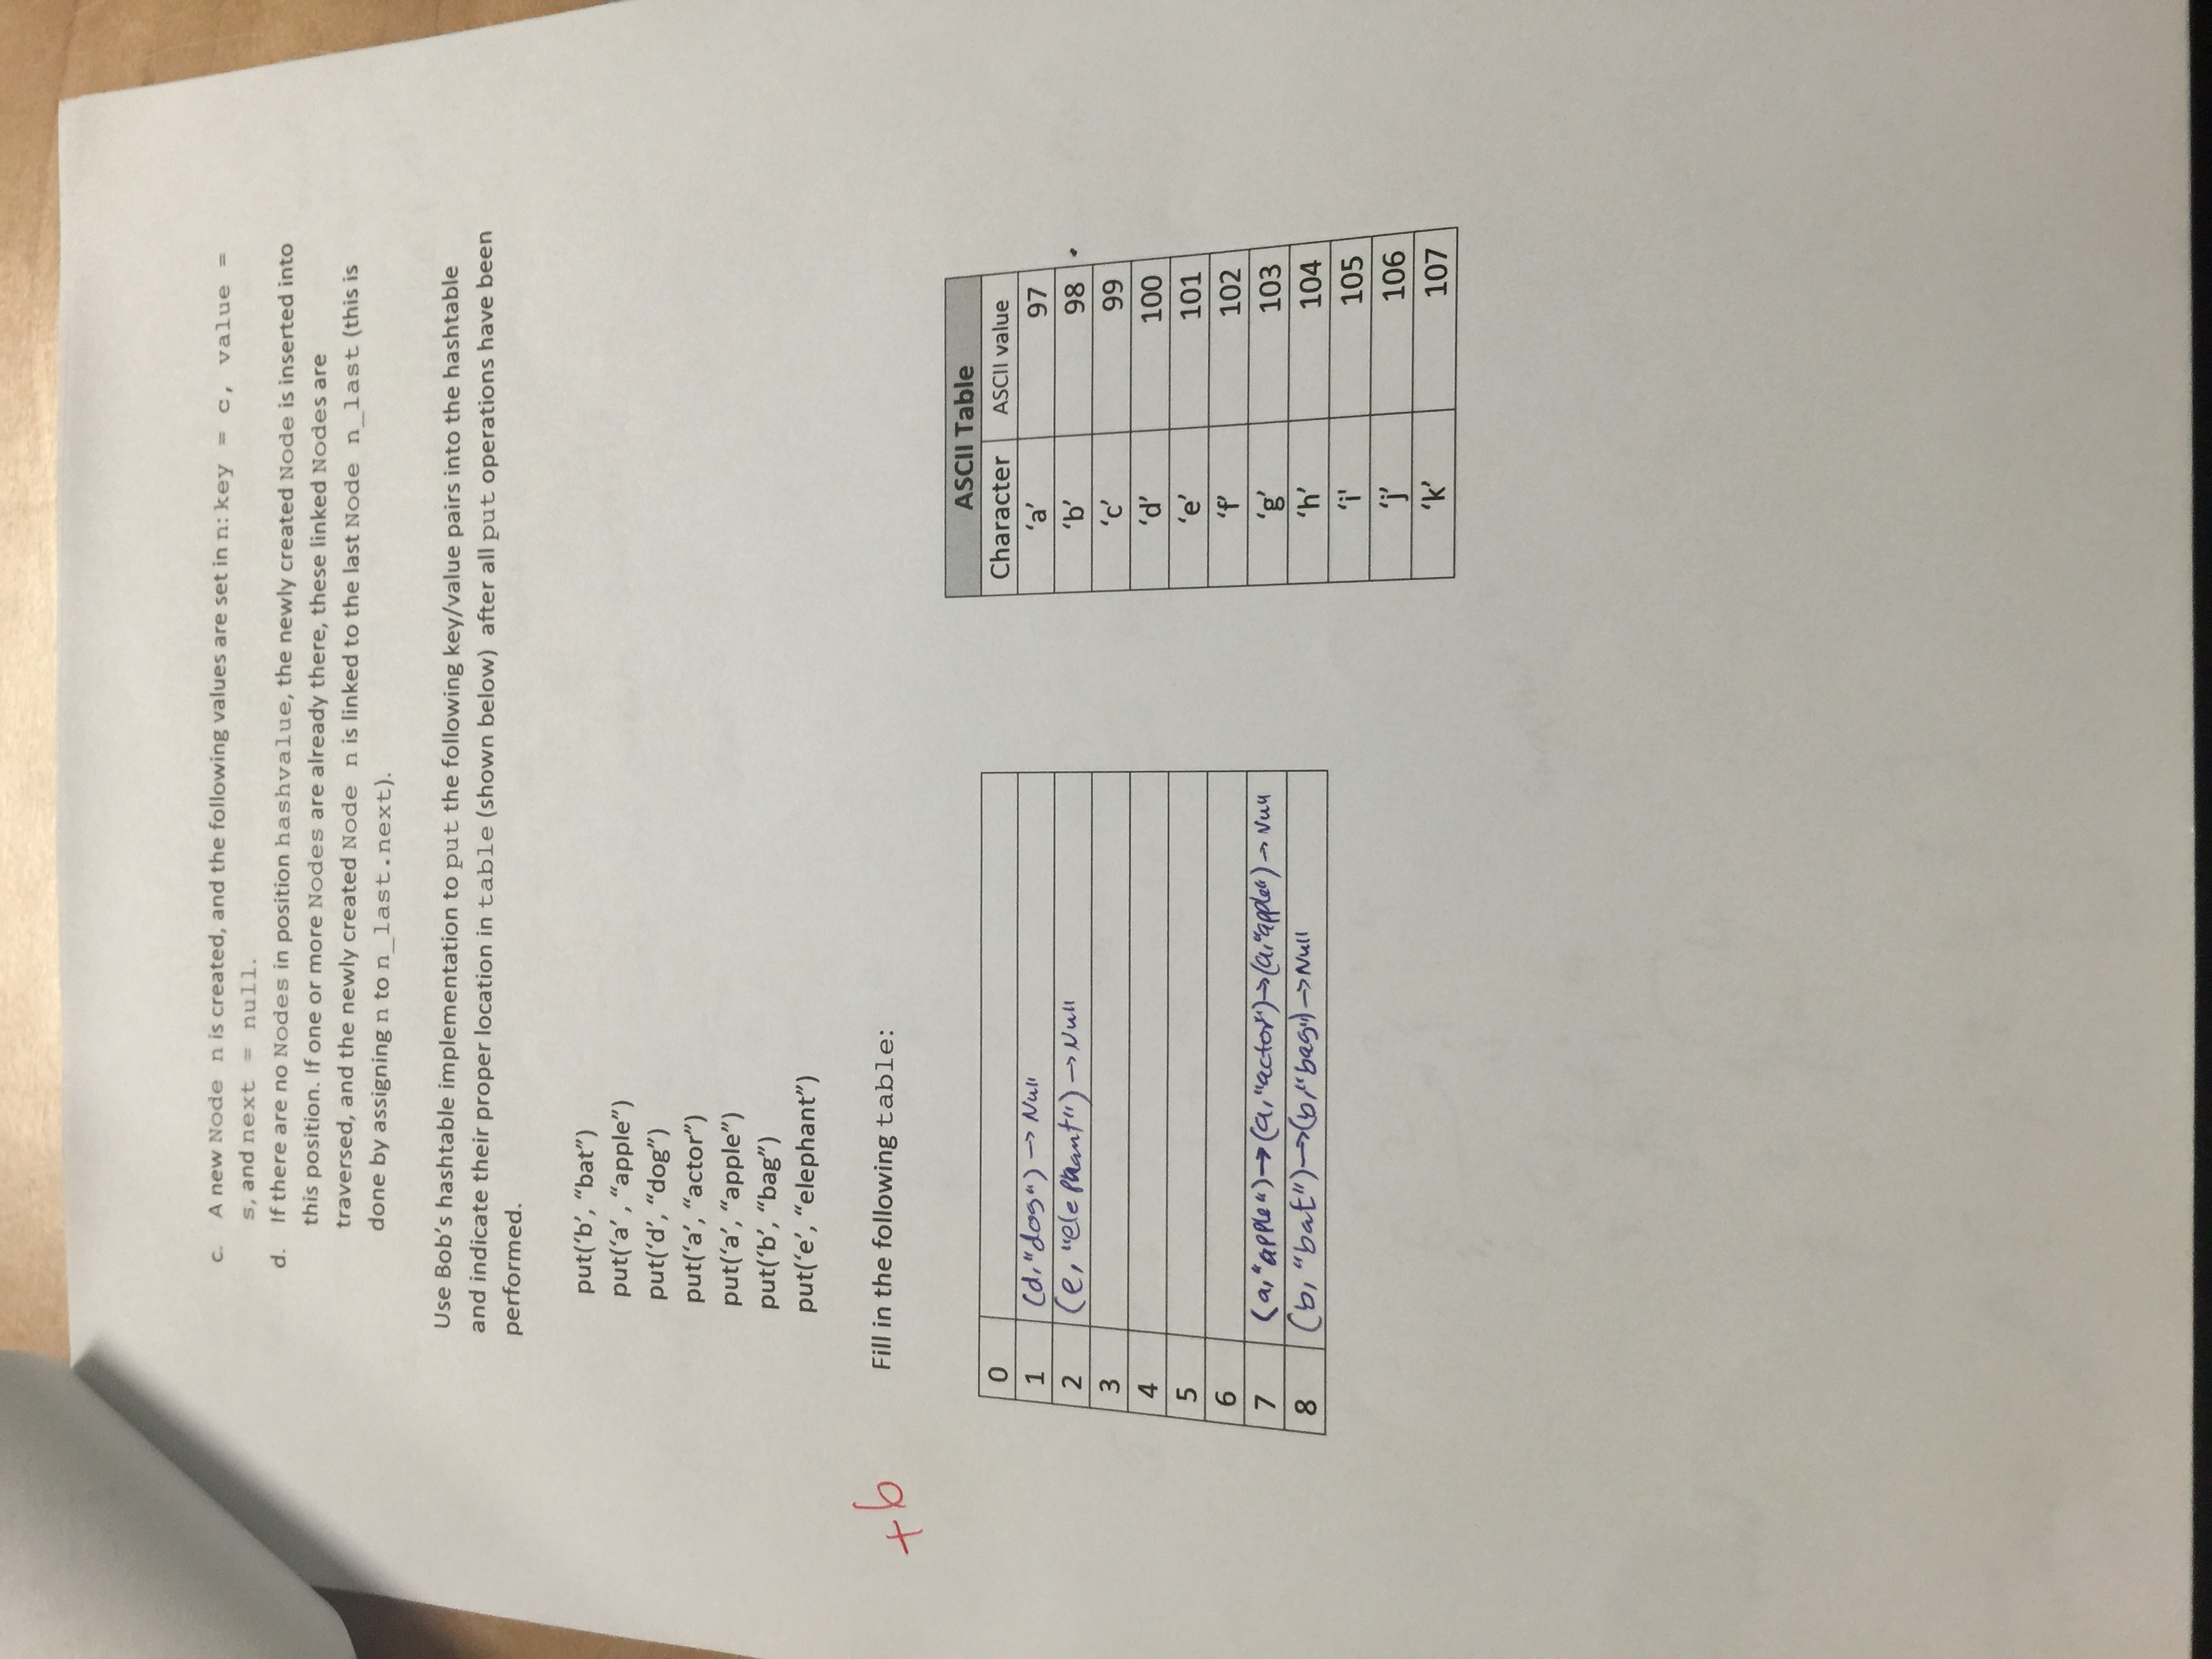 c. A new Node n is created, and the following values are set in n: key = c, value =
s, and next = null.
d. If there are no Nodes in position hashvalue, the newly created Node is inserted into
this position. If one or more Nodes are already there, these linked Nodes are
traversed, and the newly created Node n is linked to the last Node n_last (this is
done by assigning n to n_last.next).
Use Bob's hashtable implementation to put the following key/value pairs into the hashtable
and indicate their proper location in table (shown below) after all put operations have been
performed.
put('b', "bat")
put('a' , "apple")
put('d', "dog")
put('a', "actor")
put('a', "apple")
put('b', "bag")
put('e', "elephant")
+6
Fill in the following table:
0
1 (d, "dog") → Null
2 (e, "elephant") → Null
3
4
5
6
7 (a, "apple") → (a, "actor") → (a, "apple") → Null
8 (b, "bat") → (b, "bag") → Null
ASCII Table
Character ASCII value
'a' 97
'b' 98
'c' 99
'd' 100
'e' 101
'f' 102
'g' 103
'h' 104
'i' 105
'j' 106
'k' 107